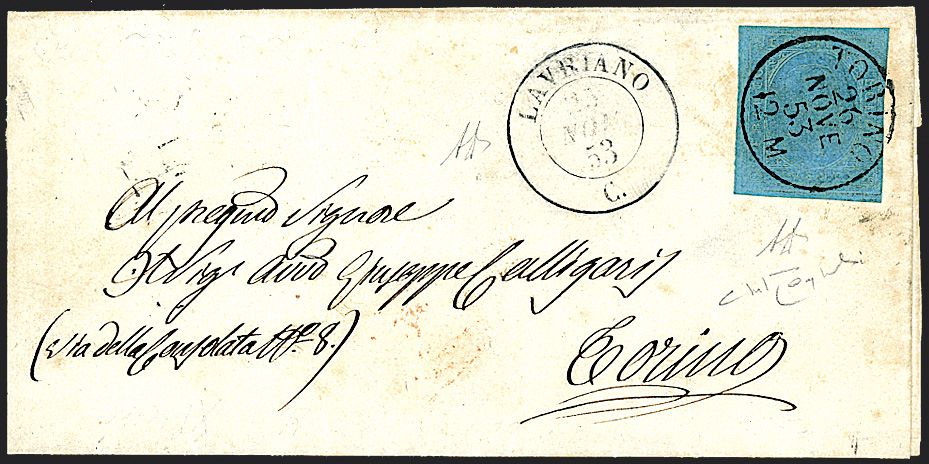 LAVRIANO
NOV
53
C.
TORINO
26
NOVE
53
12 M
Al pregmo Signore
Il Sigr Avvo Giuseppe Calligaris
(Via della Consolata No. 8.)
Torino